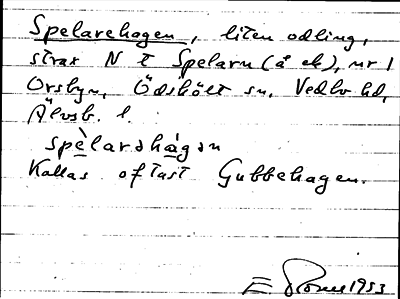 Spelarehagen, liten odling,
strax N t Spelarn (å ek), nr 1
Orsbyn, Ödskölt sn, Vedbo hd,
Älvsb. l.
spèlarshágən
Kallas oftast Gubbehagen.
E. 1953